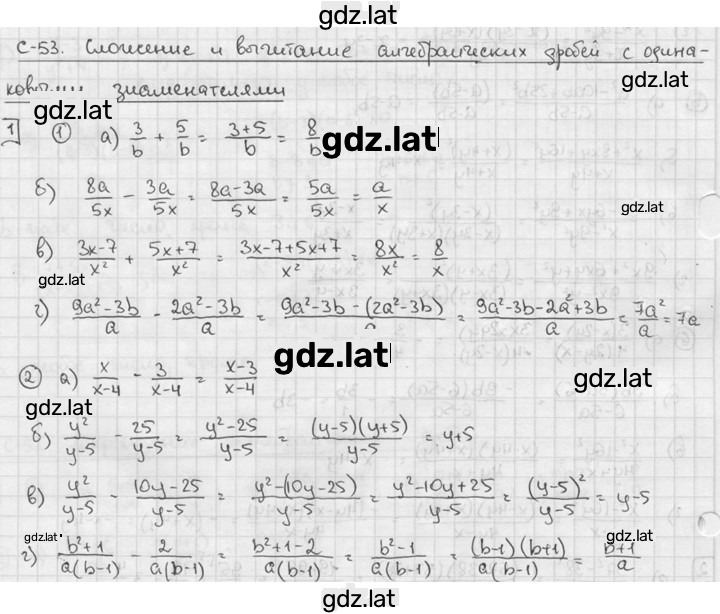 gdz.lat
С-53. Сложение и вычитание алгебраических дробей с одина-
gdz.lat
ковыми знаменателями
gdz.lat
1 ① а) 3/b + 5/b = (3+5)/b = 8/b
gdz.lat
б) 8a/5x - 3a/5x = (8a-3a)/5x = 5a/5x = a/x
gdz.lat
в) (3x-7)/x² + (5x+7)/x² = (3x-7+5x+7)/x² = 8x/x² = 8/x
gdz.lat
г) (9a²-3b)/a - (2a²-3b)/a = (9a²-3b-(2a²-3b))/a = (9a²-3b-2a²+3b)/a = 7a²/a = 7a
gdz.lat
② а) x/(x-4) - 3/(x-4) = (x-3)/(x-4)
gdz.lat
б) y²/(y-5) - 25/(y-5) = (y²-25)/(y-5) = (y-5)(y+5)/(y-5) = y+5
в) y²/(y-5) - (10y-25)/(y-5) = (y²-(10y-25))/(y-5) = (y²-10y+25)/(y-5) = (y-5)²/(y-5) = y-5
gdz.lat gdz.lat
г) (b²+1)/a(b-1) - 2/a(b-1) = (b²+1-2)/a(b-1) = (b²-1)/a(b-1) = (b-1)(b+1)/a(b-1) = (b+1)/a
gdz.lat